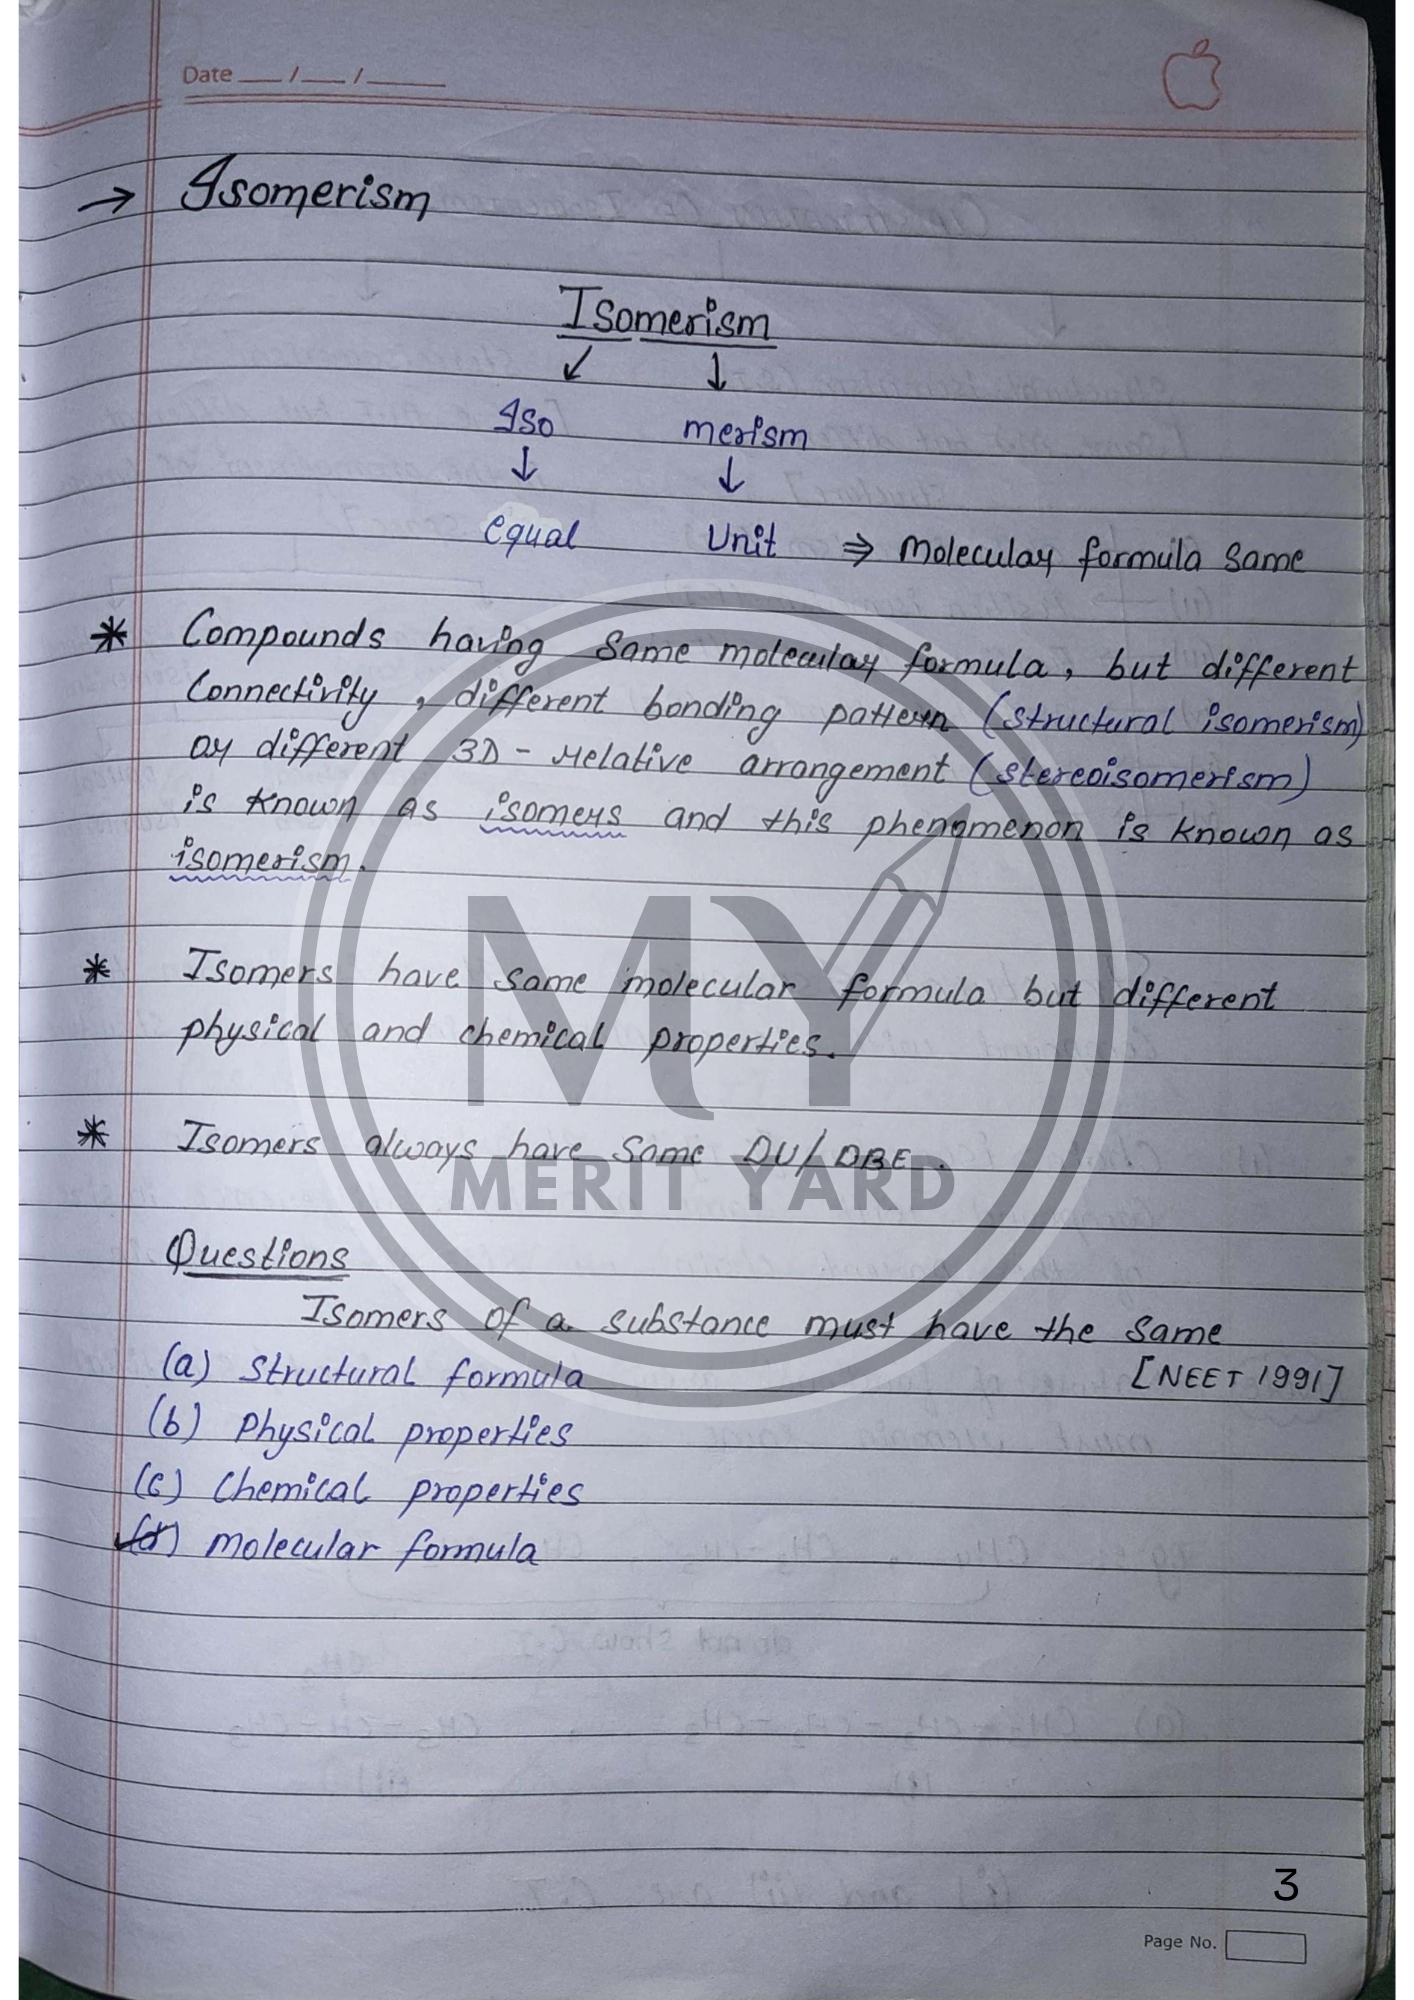 Date __ / __ / ____
→ Isomerism
Isomerism
↙ ↓
Iso merism
↓ ↓
equal Unit ⇒ molecular formula same
* Compounds having same molecular formula, but different
Connectivity, different bonding pattern (structural isomerism)
or different 3D - relative arrangement (stereoisomerism)
is known as isomers and this phenomenon is known as
isomerism.
* Isomers have same molecular formula but different
physical and chemical properties.
* Isomers always have same DU/DBE.
MY
MERIT YARD
Questions
Isomers of a substance must have the same
(a) Structural formula [NEET 1991]
(b) Physical properties
(c) Chemical properties
(d) molecular formula
3
Page No.